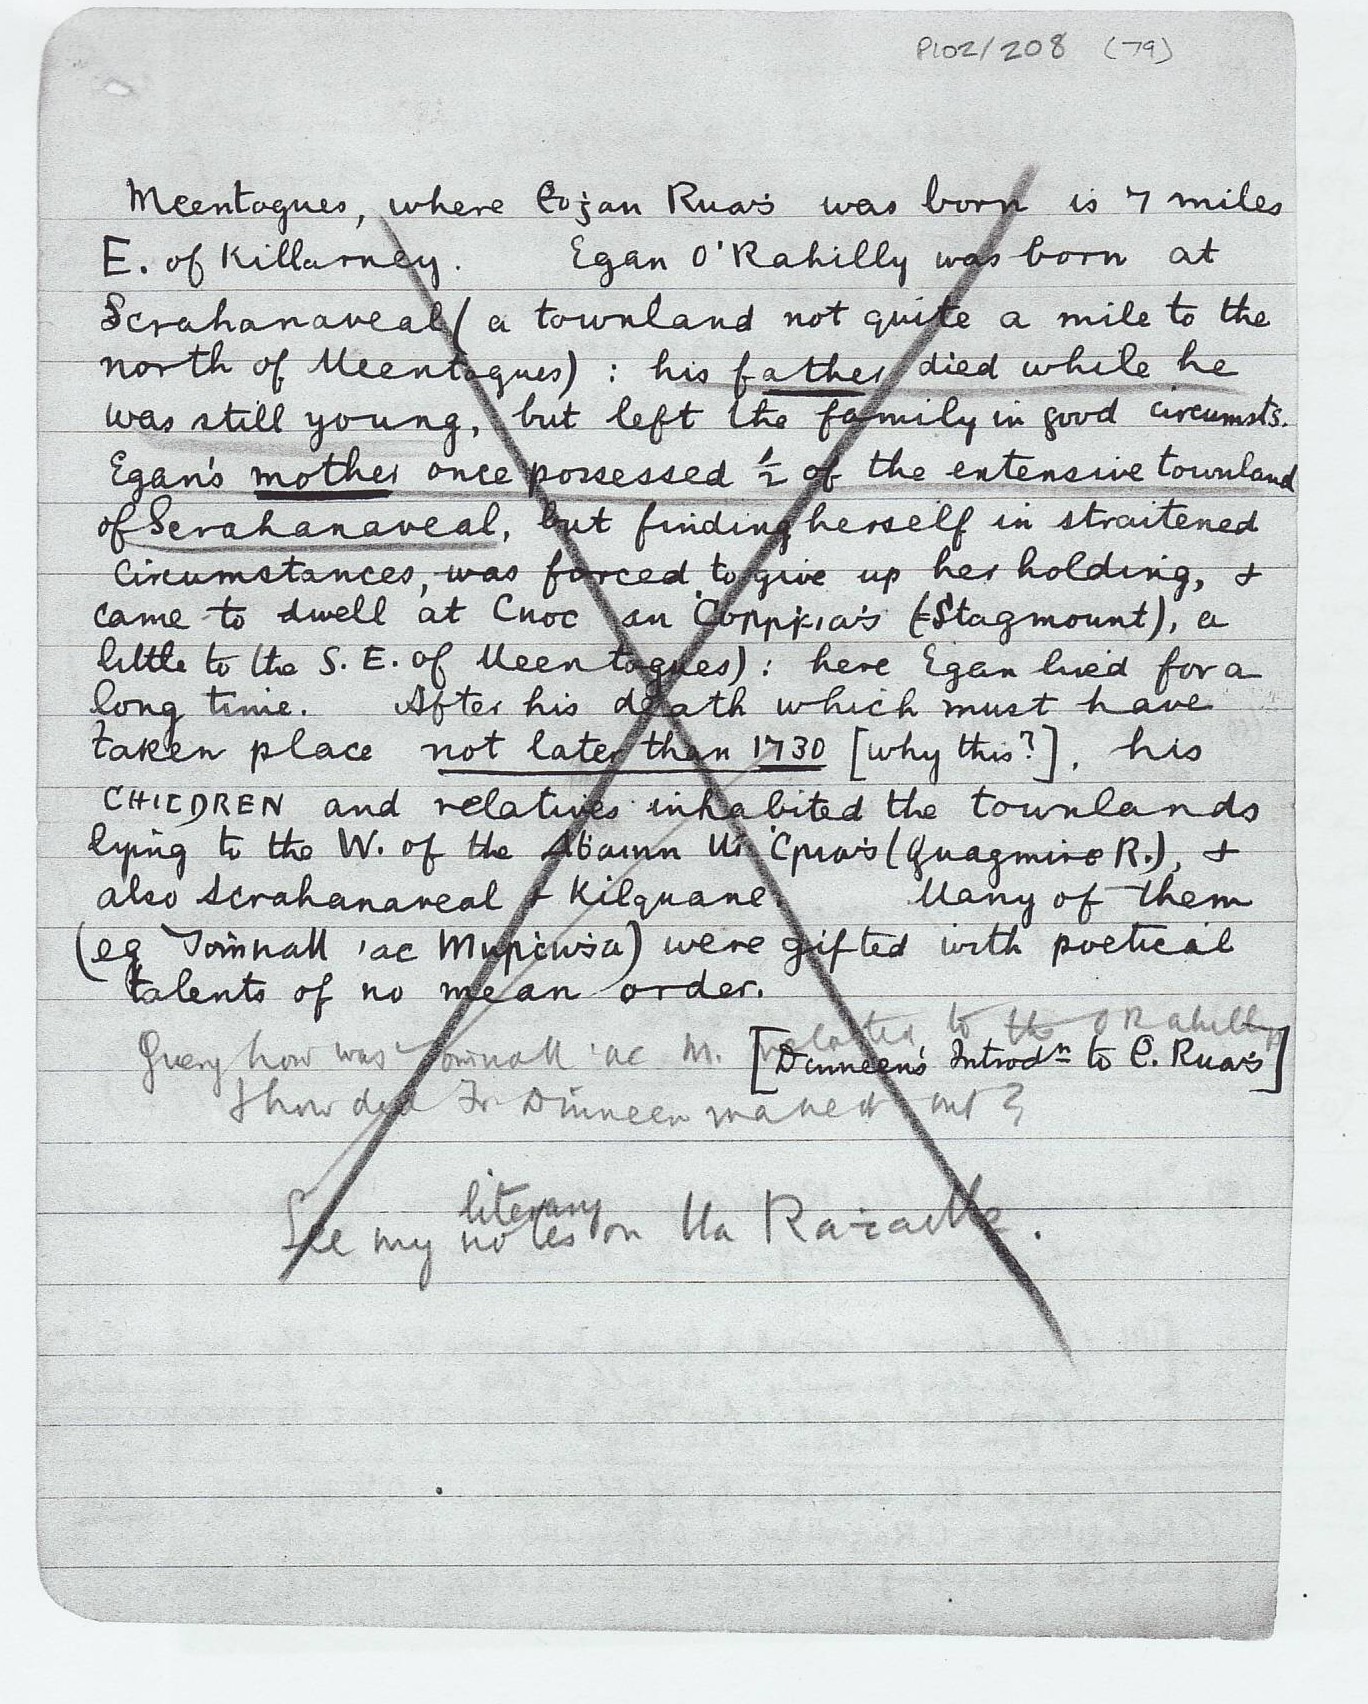 P102/208 (79)
Meentogues, where Eoġan Ruaḋ was born is 7 miles
E. of Killarney. Egan O'Rahilly was born at
Scrahanaveal (a townland not quite a mile to the
north of Meentogues) : his father died while he
was still young, but left the family in good circumsts.
Egan's mother once possessed ½ of the extensive townland
of Scrahanaveal, but finding herself in straitened
circumstances, was forced to give up her holding, &
came to dwell at Cnoc an
(Stagmount), a
little to the S.E. of Meentogues) : here Egan lived for a
long time. After his death which must have
taken place not later than 1730 [why this?], his
CHILDREN and relatives inhabited the townlands
lying to the W. of the Aḃainn Uí Ċriaḋ (Quagmire R.), &
also Scrahanaveal & Kilquane. Many of them
(eg Doṁnall 'ac Muirċiusa) were gifted with poetical
talents of no mean order.
Query how was Doṁnall 'ac M. related to the O Rahillys
[Dinneen's Introdn to E. Ruaḋ]
& how did Fr Dinneen make it out?
literary
See my notes on Ua Raṫaille.